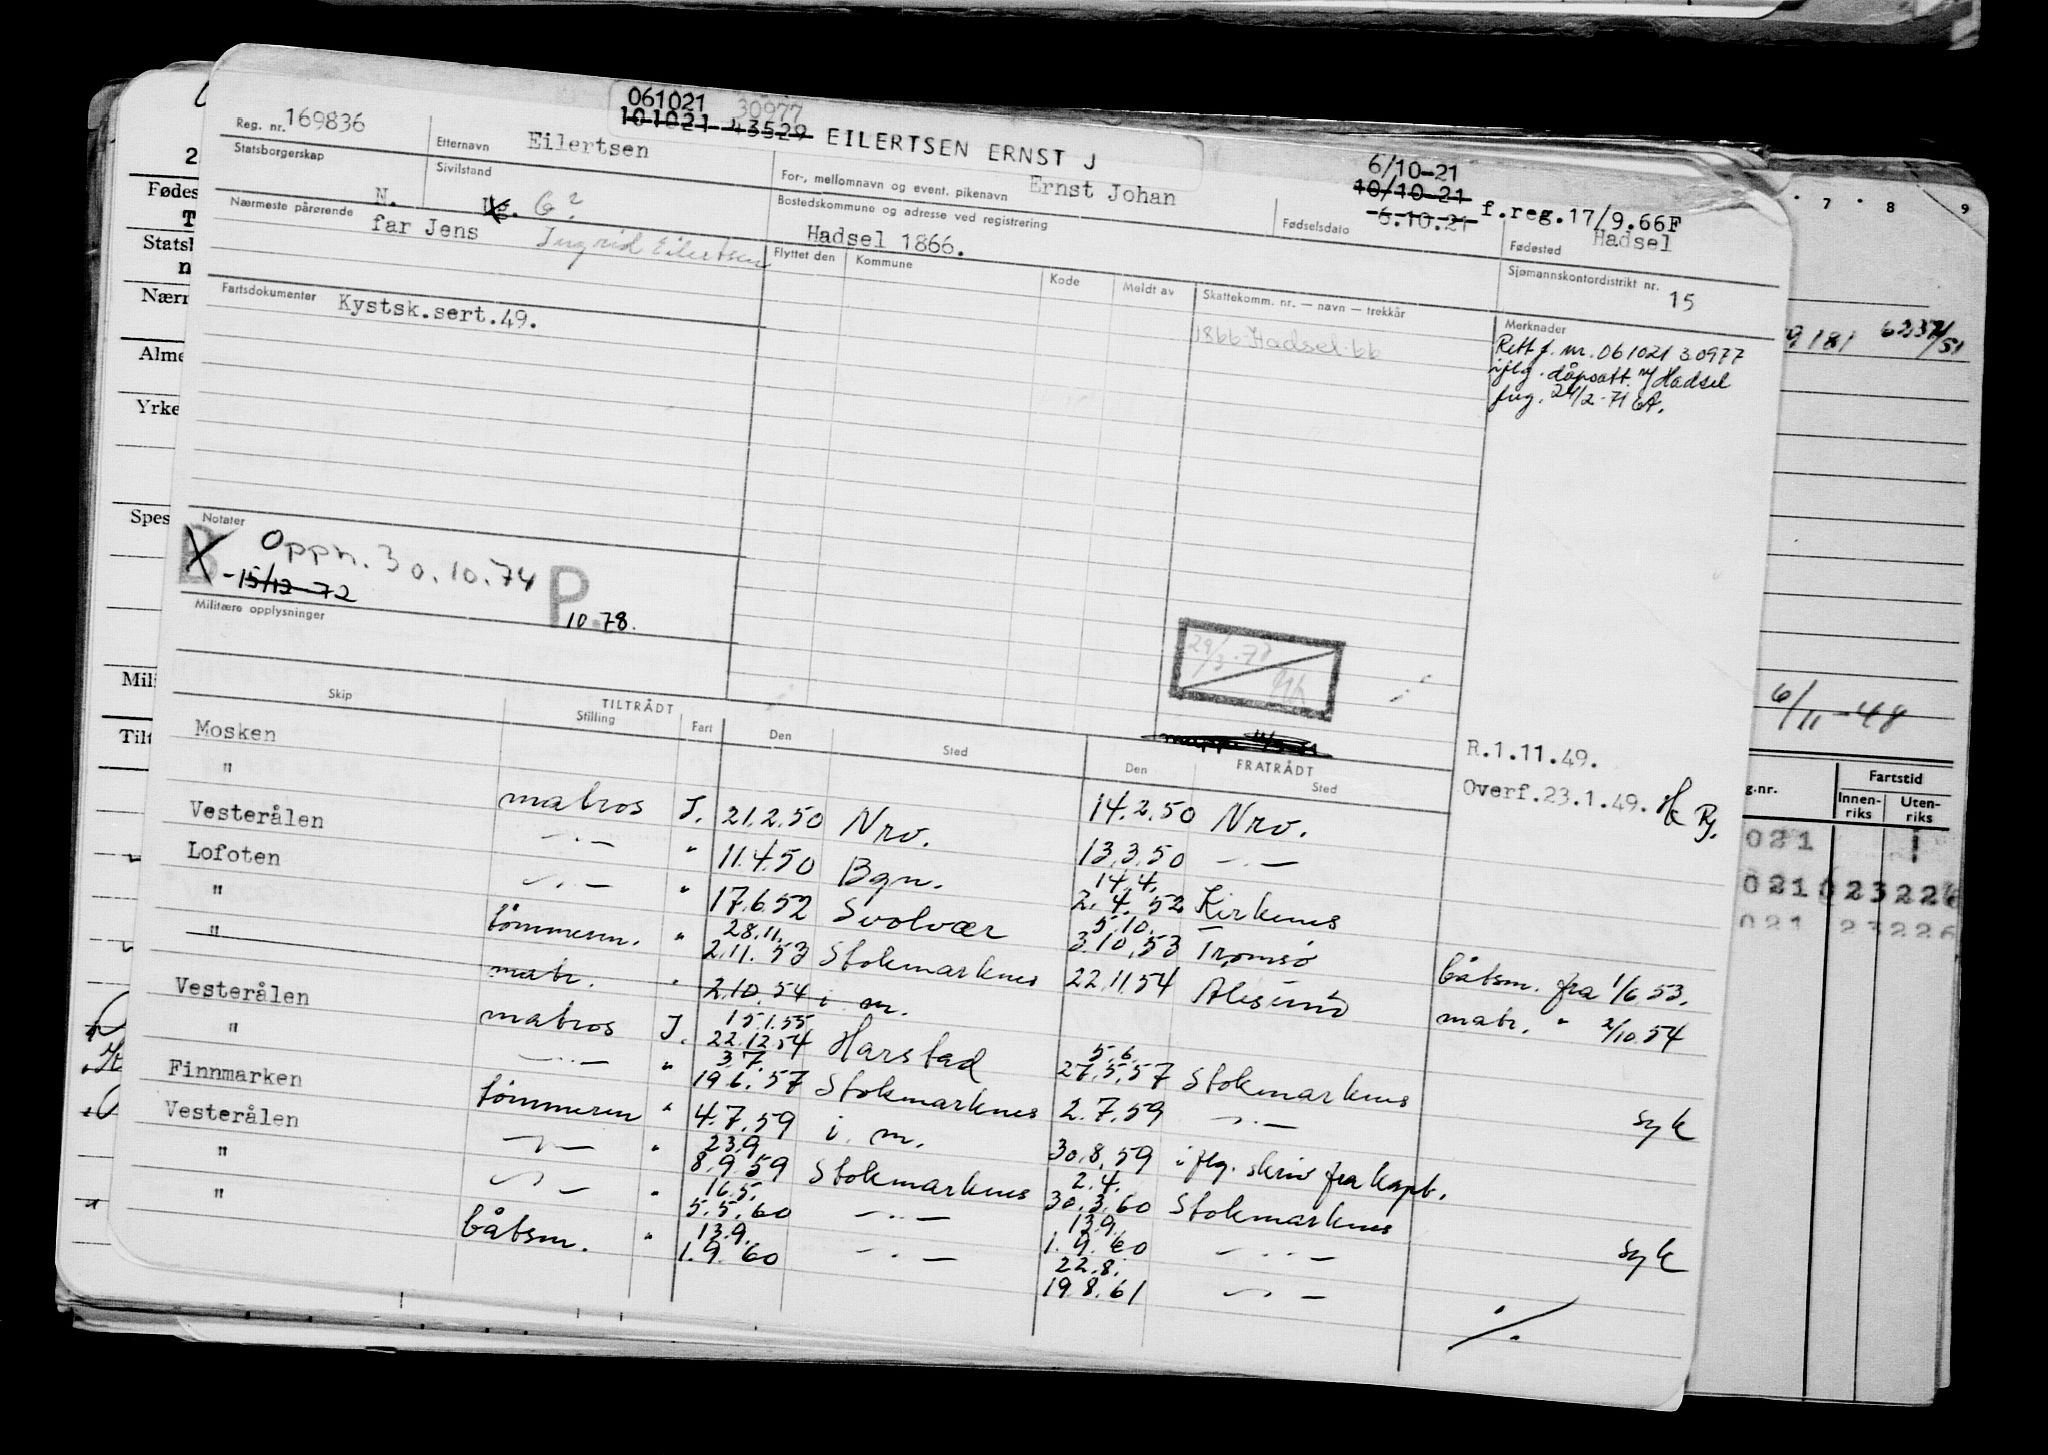 061021 30977
101021 43529 EILERTSEN ERNST J
Reg. nr. 169836
Etternavn Eilertsen
For-, mellomnavn og event. pikenavn Ernst Johan
6/10-21
10/10-21
6.10.21
Fødselsdato
f.reg.17/9.66F
Fødested Hadsel
Statsborgerskap N.
Sivilstand ug. G?
Bostedskommune og adresse ved registrering
Hadsel 1866.
Sjømannskontordistrikt nr. 15
Nærmeste pårørende far Jens Ingrid Eilertsen
Flyttet den Kommune Kode Meldt av Skattekomm. nr. — navn — trekkår
1866 Hadsel 66
Fartsdokumenter Kystsk.sert.49.
Merknader
Rett f. nr. 061021 30977
iflg. dåpsatt. m/ Hadsel
fug. 24/2-71 EA.
Notater
B Oppn. 30.10.74 P
-15/12-72
10.78.
Militære opplysninger
29/3.77
R.1.11.49.
Overf.23.1.49.
TILTRÅDT FRATRÅDT
Skip Stilling Fart Den Sted Den Sted
Mosken matros I. 21.2.50 Nrv. 14.2.50 Nrv.
" " 11.4.50 Bgn. 13.3.50
14.4.
Vesterålen " 17.6.52 Svolvær 2.4.52 Kirkenes
28.11. 5.10.
Lofoten tømmerm. " 2.11.53 Stokmarknes 3.10.53 Tromsø båtsm. fra 1/6 53.
" matr. " 2.10.54 i m. 22.11.54 Ålesund matr. " 2/10.54
15.1.55
" matros I. 22.12.54 Harstad
3.7. 5.6.
Vesterålen " 19.6.57 Stokmarknes 27.5.57 Stokmarknes
" tømmerm " 4.7.59 i. m. 2.7.59 syk
23.9
Finnmarken " 8.9.59 Stokmarknes 30.8.59 iflg. skriv fra kapt.
16.5. 2.4.
Vesterålen " 5.5.60 30.3.60 Stokmarknes
13.9. 13.9.
" båtsm. " 1.9.60 1.9.60 syk
22.8.
" 19.8.61
./.
Fødes
Statsb
Nærn
Alme
Yrke
Spes
Mili
Tilt
7 8 9
6237/51
6/11-48
g.nr. Fartstid
Innen-riks Uten-riks
021
021 023226
021 23226